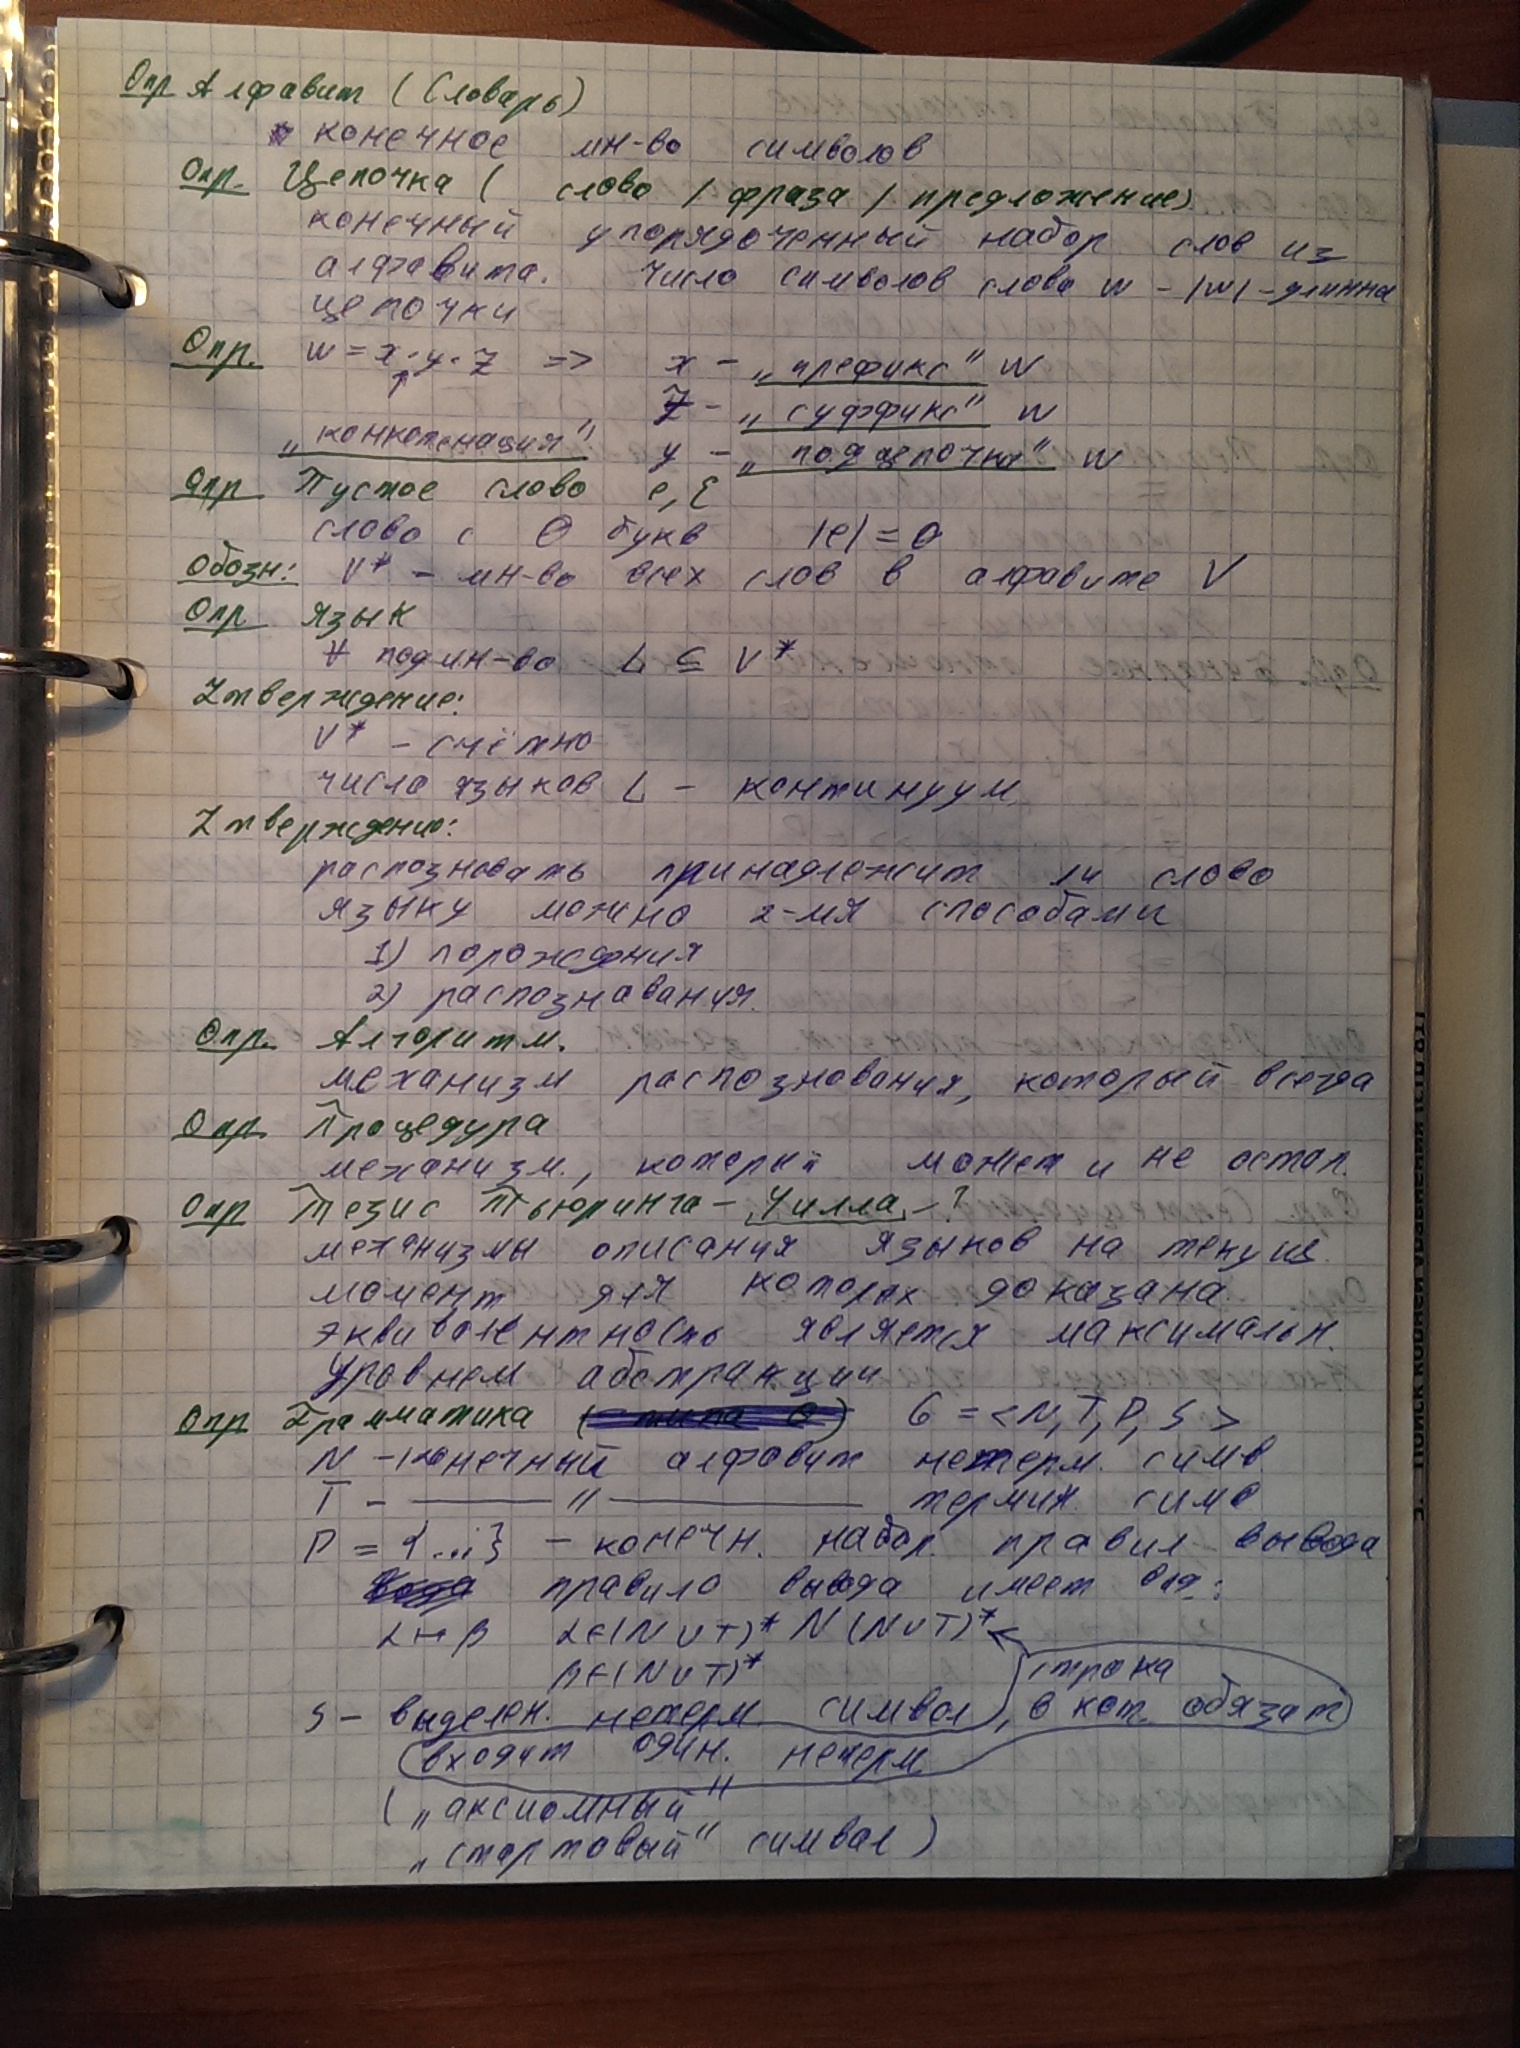 Опр Алфавит (Словарь)
конечное мн-во символов
Опр. Цепочка ( слово / фраза / предложение)
конечный упорядоченный набор слов из
алфавита. Число символов слова w - |w| - длинна
цепочки
Опр. w = x · y · z => x - „префикс" w
z - „суффикс" w
„конкотенация" y - „подцепочка" w
Опр Пустое слово e, ε
слово с 0 букв |e| = 0
Обозн: V* - мн-во всех слов в алфавите V
Опр Язык
∀ подмн-во L ⊆ V*
Утверждение:
V* - счётно
число языков L - континуум
Утверждение:
распозновать принадлежит ли слово
языку можно 2-мя способами
1) порождения
2) распознавания.
Опр. Алгоритм.
механизм распознования, который всегда
Опр. Процедура
механизм., который может и не остан.
Опр Тезис Тьюринга - Чилла - ?
механизмы описания языков на текущ.
момент для которых доказана
эквивалентность является максимальн.
уровнем абстракции
Опр Грамматика (типа 0) G = <N, T, P, S>
N - конечный алфавит нетерм. симв
T - —— " —— термин. симв
P = {...} - конечн. набор. правил вывода
правило вывода имеет вид:
α ↦ β α∈(N∪T)* N (N∪T)*
β∈(N∪T)* строка
S - выделен. нетерм. символ, в кот. обязат
входит один. нетерм.
(„аксиомный"
„стартовый" символ)